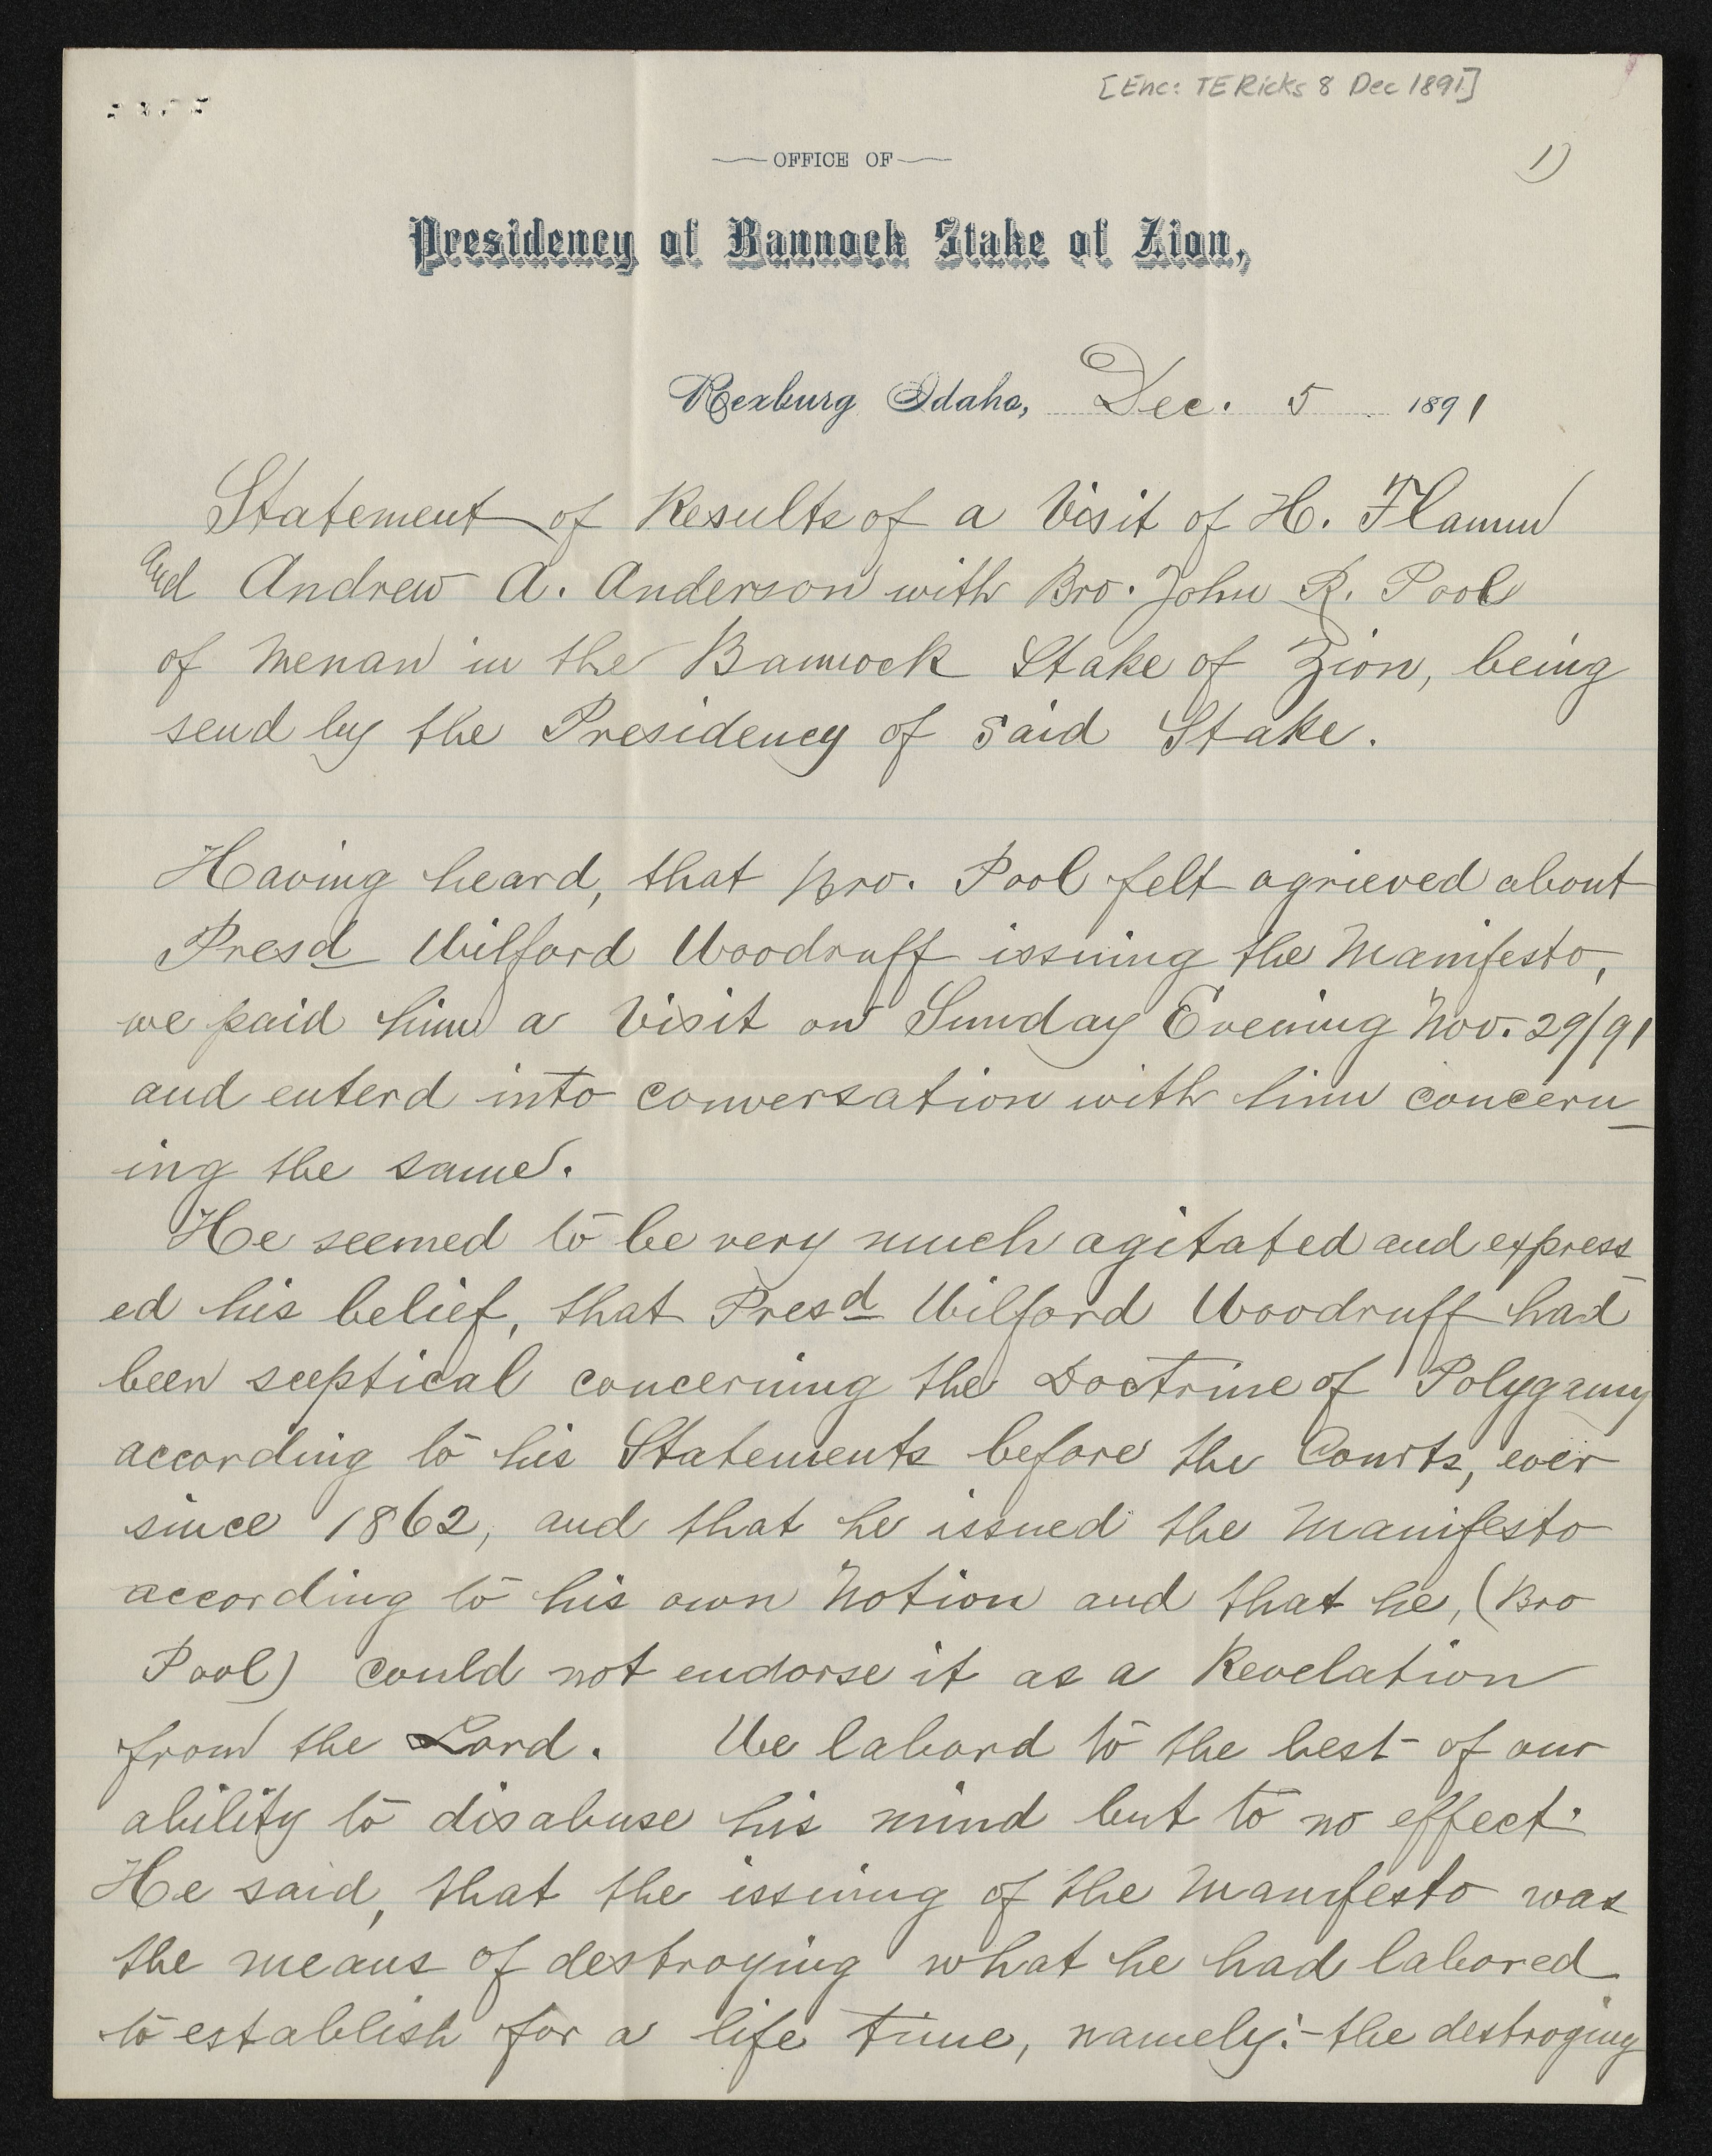 [Enc: TE Ricks 8 Dec 1891]
1)
OFFICE OF
Presidency of Bannock Stake of Zion,
Rexburg Idaho, Dec. 5 1891
Statement of Results of a Visit of H. Flamm
and Andrew A. Anderson with Bro. John R. Pool
of Menan in the Bannock Stake of Zion, being
send by the Presidency of said Stake.
Having heard, that Bro. Pool felt agrieved about
Presd Wilford Woodruff issuing the Manifesto,
we paid him a Visit on Sunday Evening Nov. 29/91
and enterd into conversation with him concern
ing the same.
He seemed to be very much agitated and express
ed his belief, that Presd Wilford Woodruff had
been sceptical concerning the Doctrine of Polygamy
according to his Statements before the Courts, ever
since 1862, and that he issued the Manifesto
according to his own Notion and that he, (Bro
Pool) could not endorse it as a Revelation
from the Lord. We labord to the best of our
ability to disabuse his mind but to no effect.
He said, that the issuing of the Manifesto was
the means of destroying what he had labored
to establish for a life time, namely:- the destroying